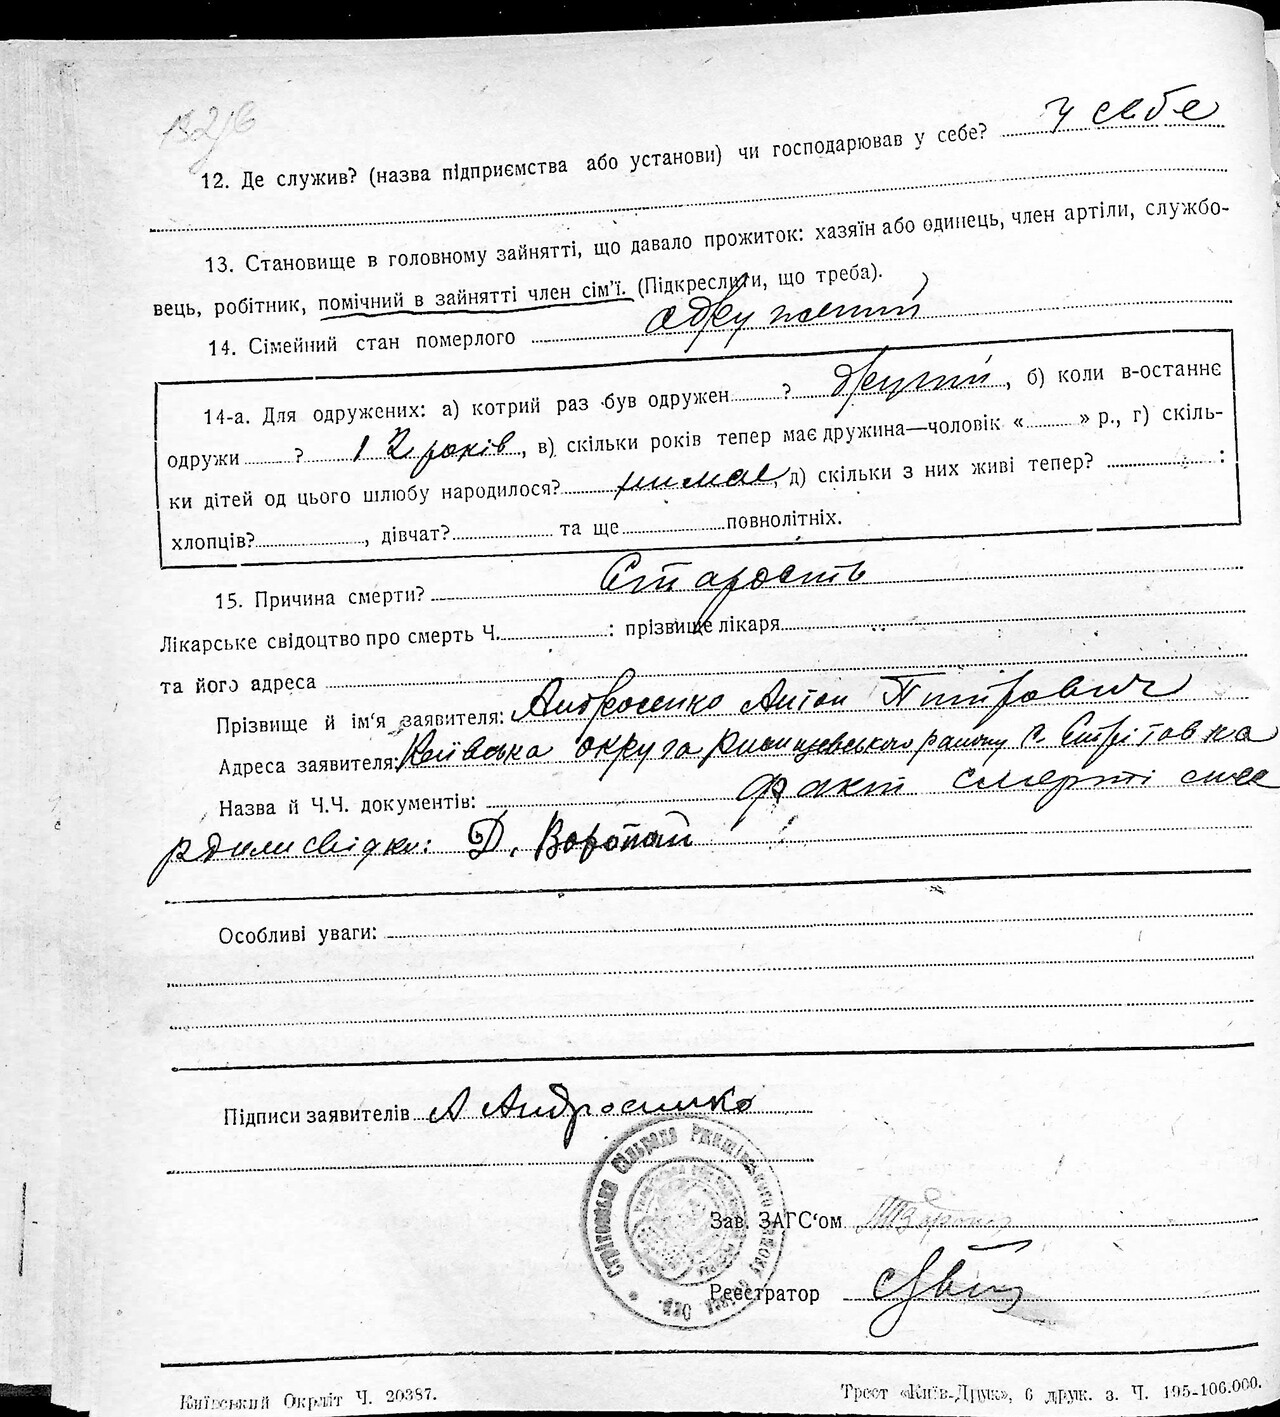 12. Де служив? (назва підприємства або установи) чи господарював у себе? у себе
13. Становище в головному зайнятті, що давало прожиток: хазяїн або одинець, член артіли, службо-
вець, робітник, помічний в зайнятті член сім'ї. (Підкреслити, що треба).
14. Сімейний стан померлого одружений
14-а. Для одружених: а) котрий раз був одружен ? другий, б) коли в-останнє
одружи ? 12 років, в) скільки років тепер має дружина—чоловік « » р., г) скіль-
ки дітей од цього шлюбу народилося? нимає, д) скільки з них живі тепер? :
хлопців? , дівчат? та ще повнолітніх.
15. Причина смерти? Старость
Лікарське свідоцтво про смерть Ч. : прізвище лікаря
та його адреса
Прізвище й ім'я заявителя: Андросенко Антон Питрович
Адреса заявителя: Київська округа Ржищевського району с. Стрітовка
Назва й Ч.Ч. документів: факт смерті стве
рдили свідки: Д. Воропай
Особливі уваги:
Підписи заявителів А Андросенко
Стрітовська Сільрада Ржищівського району
Зав. ЗАГС'ом
Реєстратор
Київський Окрліт Ч. 20387.
Трест «Київ-Друк», 6 друк. з. Ч. 195-106.000.